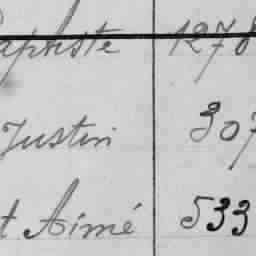 aptiste 1278
Justin 307
t Aimé 533